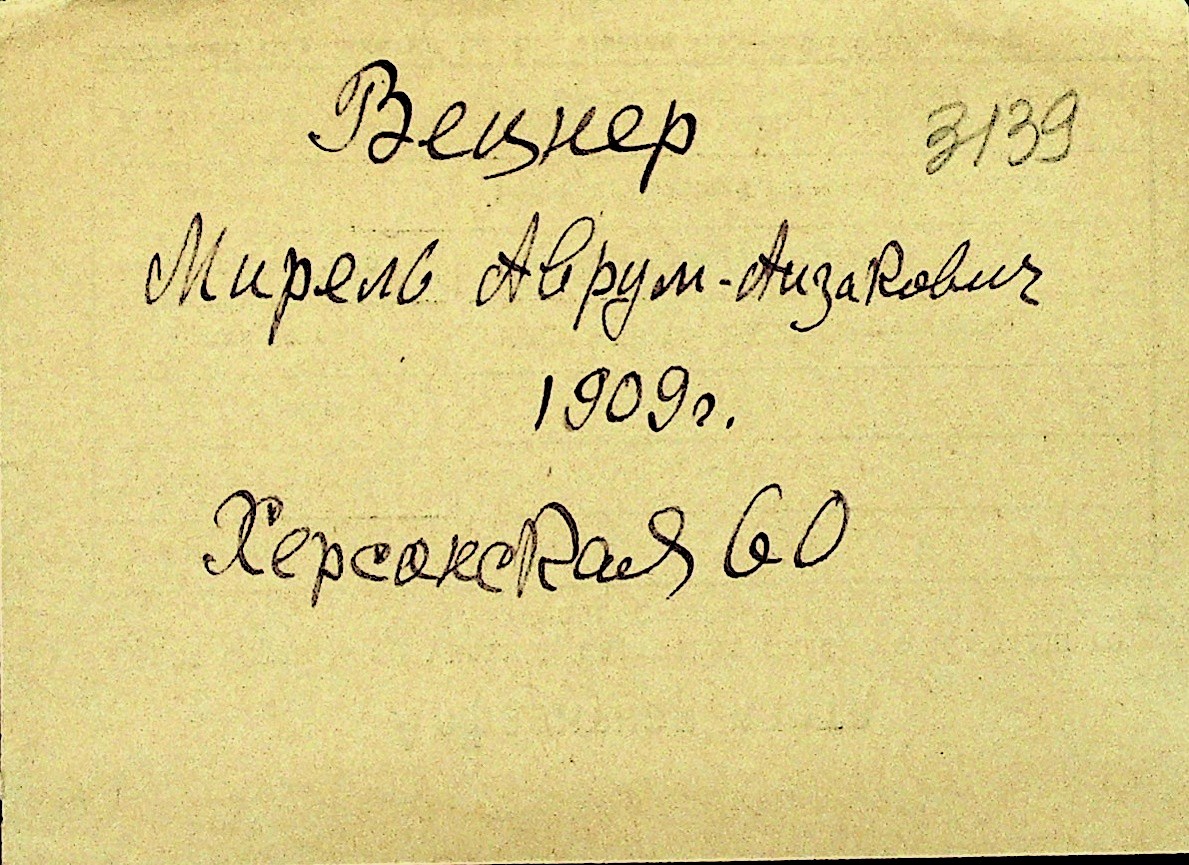 Вецнер 3139
Мирель Аврум-Аизакович
1909г.
Херсонская 60